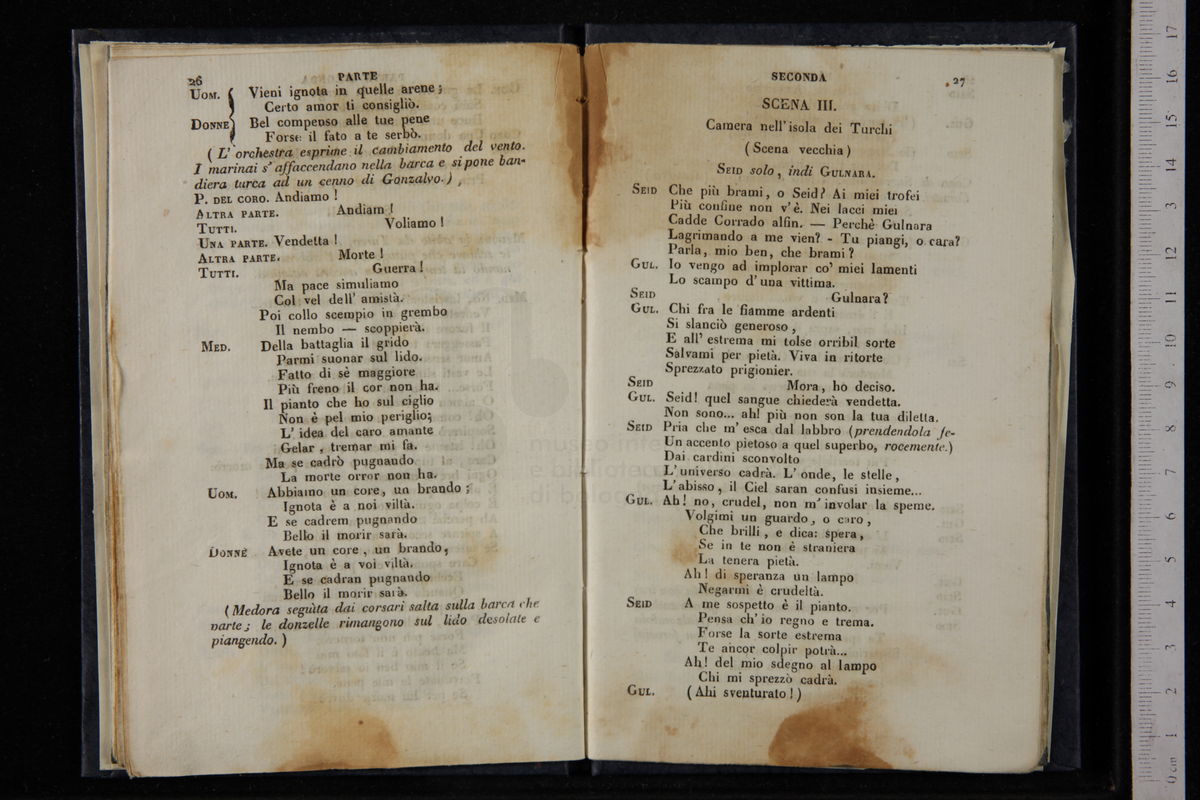 26
PARTE
UOM. Vieni ignota in quelle arene;
Certo amor ti consigliò.
DONNE Bel compenso alle tue pene
Forse il fato a te serbò.
( L' orchestra esprime il cambiamento del vento.
I marinai s' affaccendano nella barca e si pone ban-
diera turca ad un cenno di Gonzalvo.) ,
P. DEL CORO. Andiamo !
ALTRA PARTE. Andiam !
TUTTI. Voliamo !
UNA PARTE. Vendetta !
ALTRA PARTE. Morte !
TUTTI. Guerra !
Ma pace simuliamo
Col vel dell' amistà.
Poi collo scempio in grembo
Il nembo — scoppierà.
MED. Della battaglia il grido
Parmi suonar sul lido.
Fatto di sè maggiore
Più freno il cor non ha.
Il pianto che ho sul ciglio
Non è pel mio periglio;
L' idea del caro amante
Gelar , tremar mi fa.
Ma se cadrò pugnando
La morte orror non ha.
UOM. Abbiamo un core, un brando ;
Ignota è a noi viltà.
E se cadrem pugnando
Bello il morir sarà.
DONNE Avete un core , un brando,
Ignota è a voi viltà.
E se cadran pugnando
Bello il morir sarà.
( Medora seguìta dai corsari salta sulla barca che
parte ; le donzelle rimangono sul lido desolate e
piangendo. )
SECONDA
27
SCENA III.
Camera nell' isola dei Turchi
( Scena vecchia )
SEID solo , indi GULNARA.
SEID Che più brami, o Seid? Ai miei trofei
Più confine non v' è. Nei lacci miei
Cadde Corrado alfin. — Perchè Gulnara
Lagrimando a me vien? - Tu piangi, o cara?
Parla, mio ben, che brami ?
GUL. Io vengo ad implorar co' miei lamenti
Lo scampo d' una vittima.
SEID Gulnara?
GUL. Chi fra le fiamme ardenti
Si slanciò generoso ,
E all' estrema mi tolse orribil sorte
Salvami per pietà. Viva in ritorte
Sprezzato prigionier.
SEID Mora, ho deciso.
GUL. Seid! quel sangue chiederà vendetta.
Non sono... ah! più non son la tua diletta.
SEID Pria che m' esca dal labbro (prendendola fe-
Un accento pietoso a quel superbo, rocemente.)
Dai cardini sconvolto
L' universo cadrà. L' onde, le stelle ,
L' abisso , il Ciel saran confusi insieme...
GUL. Ah! no, crudel, non m' involar la speme.
Volgimi un guardo, o caro ,
Che brilli , e dica: spera ,
Se in te non è straniera
La tenera pietà.
Ah! di speranza un lampo
Negarmi è crudeltà.
SEID A me sospetto è il pianto.
Pensa ch' io regno e trema.
Forse la sorte estrema
Te ancor colpir potrà...
Ah! del mio sdegno al lampo
Chi mi sprezzò cadrà.
GUL. (Ahi sventurato ! )